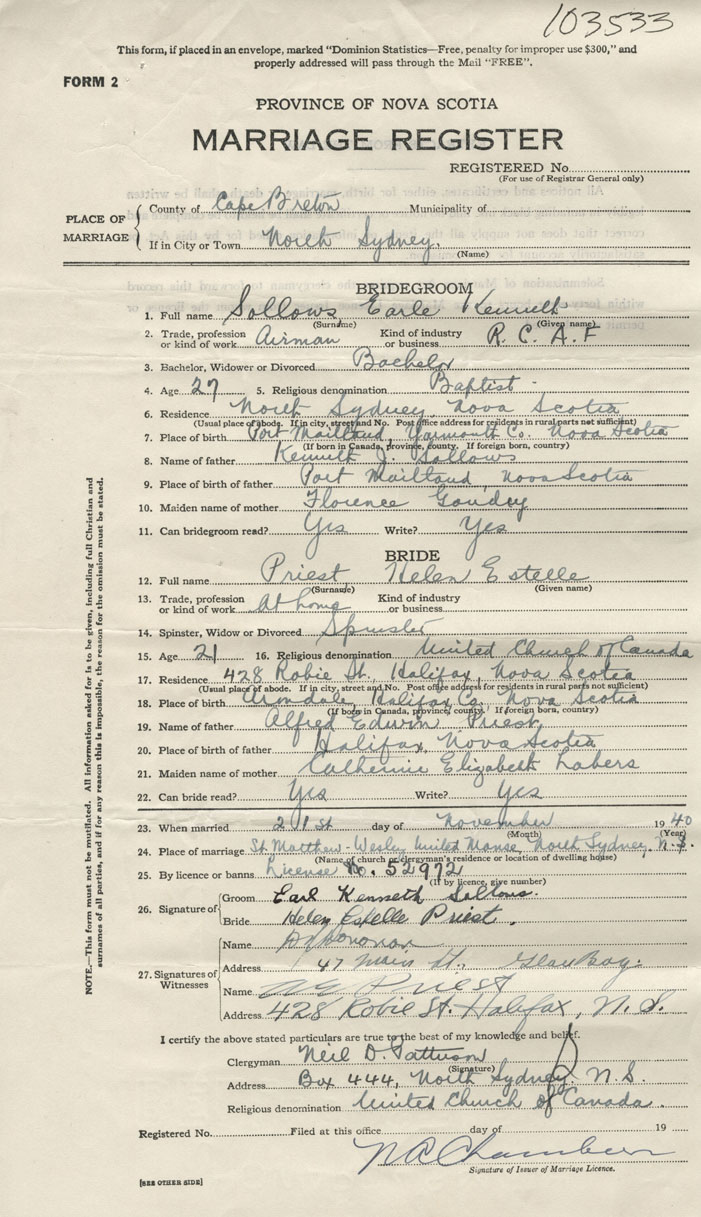 103533
This form, if placed in an envelope, marked "Dominion Statistics—Free, penalty for improper use $300," and
properly addressed will pass through the Mail "FREE".
FORM 2
PROVINCE OF NOVA SCOTIA
MARRIAGE REGISTER
REGISTERED No.
(For use of Registrar General only)
PLACE OF MARRIAGE
County of Cape Breton Municipality of
If in City or Town North Sydney.
(Name)
BRIDEGROOM
1. Full name Sollows Earle Kenneth
(Surname) (Given name)
2. Trade, profession or kind of work Airman Kind of industry or business R. C. A. F
3. Bachelor, Widower or Divorced Bachelor
4. Age 27 5. Religious denomination Baptist
6. Residence North Sydney, Nova Scotia
(Usual place of abode. If in city, street and No. Post office address for residents in rural parts not sufficient)
7. Place of birth Port Maitland, Yarmouth Co. Nova Scotia
(If born in Canada, province, county. If foreign born, country)
8. Name of father Kenneth J. Sollows
9. Place of birth of father Port Maitland, Nova Scotia
10. Maiden name of mother Florence Goudey
11. Can bridegroom read? Yes Write? Yes
BRIDE
12. Full name Priest, Helen Estelle
(Surname) (Given name)
13. Trade, profession or kind of work At home Kind of industry or business
14. Spinster, Widow or Divorced Spinster
15. Age 21 16. Religious denomination United Church of Canada
17. Residence 428 Robie St. Halifax, Nova Scotia
(Usual place of abode. If in city, street and No. Post office address for residents in rural parts not sufficient)
18. Place of birth Armdale, Halifax Co. Nova Scotia
(If born in Canada, province, county. If foreign born, country)
19. Name of father Alfred Edwin Priest
20. Place of birth of father Halifax, Nova Scotia
21. Maiden name of mother Catherine Elizabeth
22. Can bride read? Yes Write? Yes
23. When married 21st day of November 1940
(Month) (Year)
24. Place of marriage St. Matthew-Wesley United Manse, North Sydney, N.S.
(Name of church or clergyman's residence or location of dwelling house)
25. By licence or banns License No. 52972
(If by licence, give number)
26. Signature of
Groom Earl Kenneth Sollows.
Bride Helen Estelle Priest.
27. Signatures of Witnesses
Name
Address 47 Main St., Glace Bay.
Name Priest
Address 428 Robie St. Halifax, N. S.
I certify the above stated particulars are true to the best of my knowledge and belief.
Clergyman Neil D. Patterson
(Signature)
Address Box 444, North Sydney, N. S.
Religious denomination United Church of Canada.
Registered No. Filed at this office day of 19
Chambers
Signature of Issuer of Marriage Licence.
[SEE OTHER SIDE]
NOTE.—This form must not be mutilated. All information asked for is to be given, including full Christian and
surnames of all parties, and if for any reason this is impossible, the reason for the omission must be stated.